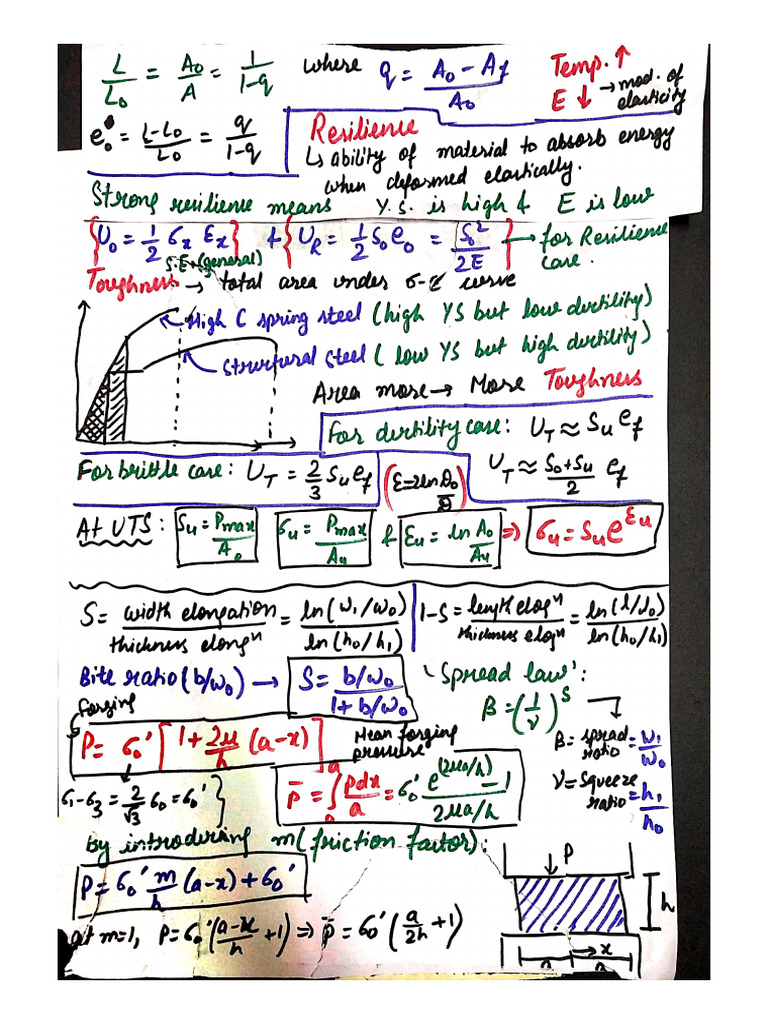 L/L₀ = A₀/A = 1/(1-q) where q = (A₀ - A_f)/A₀
Temp. ↑
E ↓ → mod. of elasticity
e₀ = (L-L₀)/L₀ = q/(1-q)
Resilience
↳ ability of material to absorb energy
when deformed elastically.
Strong resilience means Y.S. is high & E is low
{U₀ = 1/2 σₓ Ɛₓ} & {U_R = 1/2 S₀e₀ = S₀²/2E} → for Resilience case.
S.E. (general)
Toughness → total area under σ-Ɛ curve
High C spring steel (high YS but low dertility)
Structural steel (low YS but high dertility)
Area more → More Toughness
For dertility case: U_T ≈ S_u e_f
For brittle case: U_T = 2/3 S_u e_f
(Ɛ = 2ln D₀/D)
U_T ≈ (S₀+S_u)/2 e_f
At UTS: S_u = P_max/A₀ σ_u = P_max/A_u & Ɛ_u = ln A₀/A_u ⇒ σ_u = S_u e^Ɛ_u
S = width elongation/thickness elongⁿ = ln(w₁/w₀)/ln(h₀/h₁)
1-S = length elogⁿ/thickness elogⁿ = ln(l/l₀)/ln(h₀/h₁)
Bite ratio (b/w₀) → S = (b/w₀)/(1 + b/w₀)
'Spread law':
β = (1/ν)^S
forging
P = σ₀' [1 + 2μ/h (a-x)]
Mean forging pressure
β = spread ratio = w₁/w₀
ν = Squeeze ratio = h₁/h₀
σ₁-σ₃ = 2/√3 σ₀ = σ₀' }
p̄ = ∫₀ᵃ pdx/a = σ₀' (e^(2μa/h) - 1)/(2μa/h)
By introducing m (friction factor):
P = σ₀' m/h (a-x) + σ₀'
at m=1, P = σ₀' ((a-x)/h + 1) ⇒ p̄ = σ₀' (a/2h + 1)
P
h
x